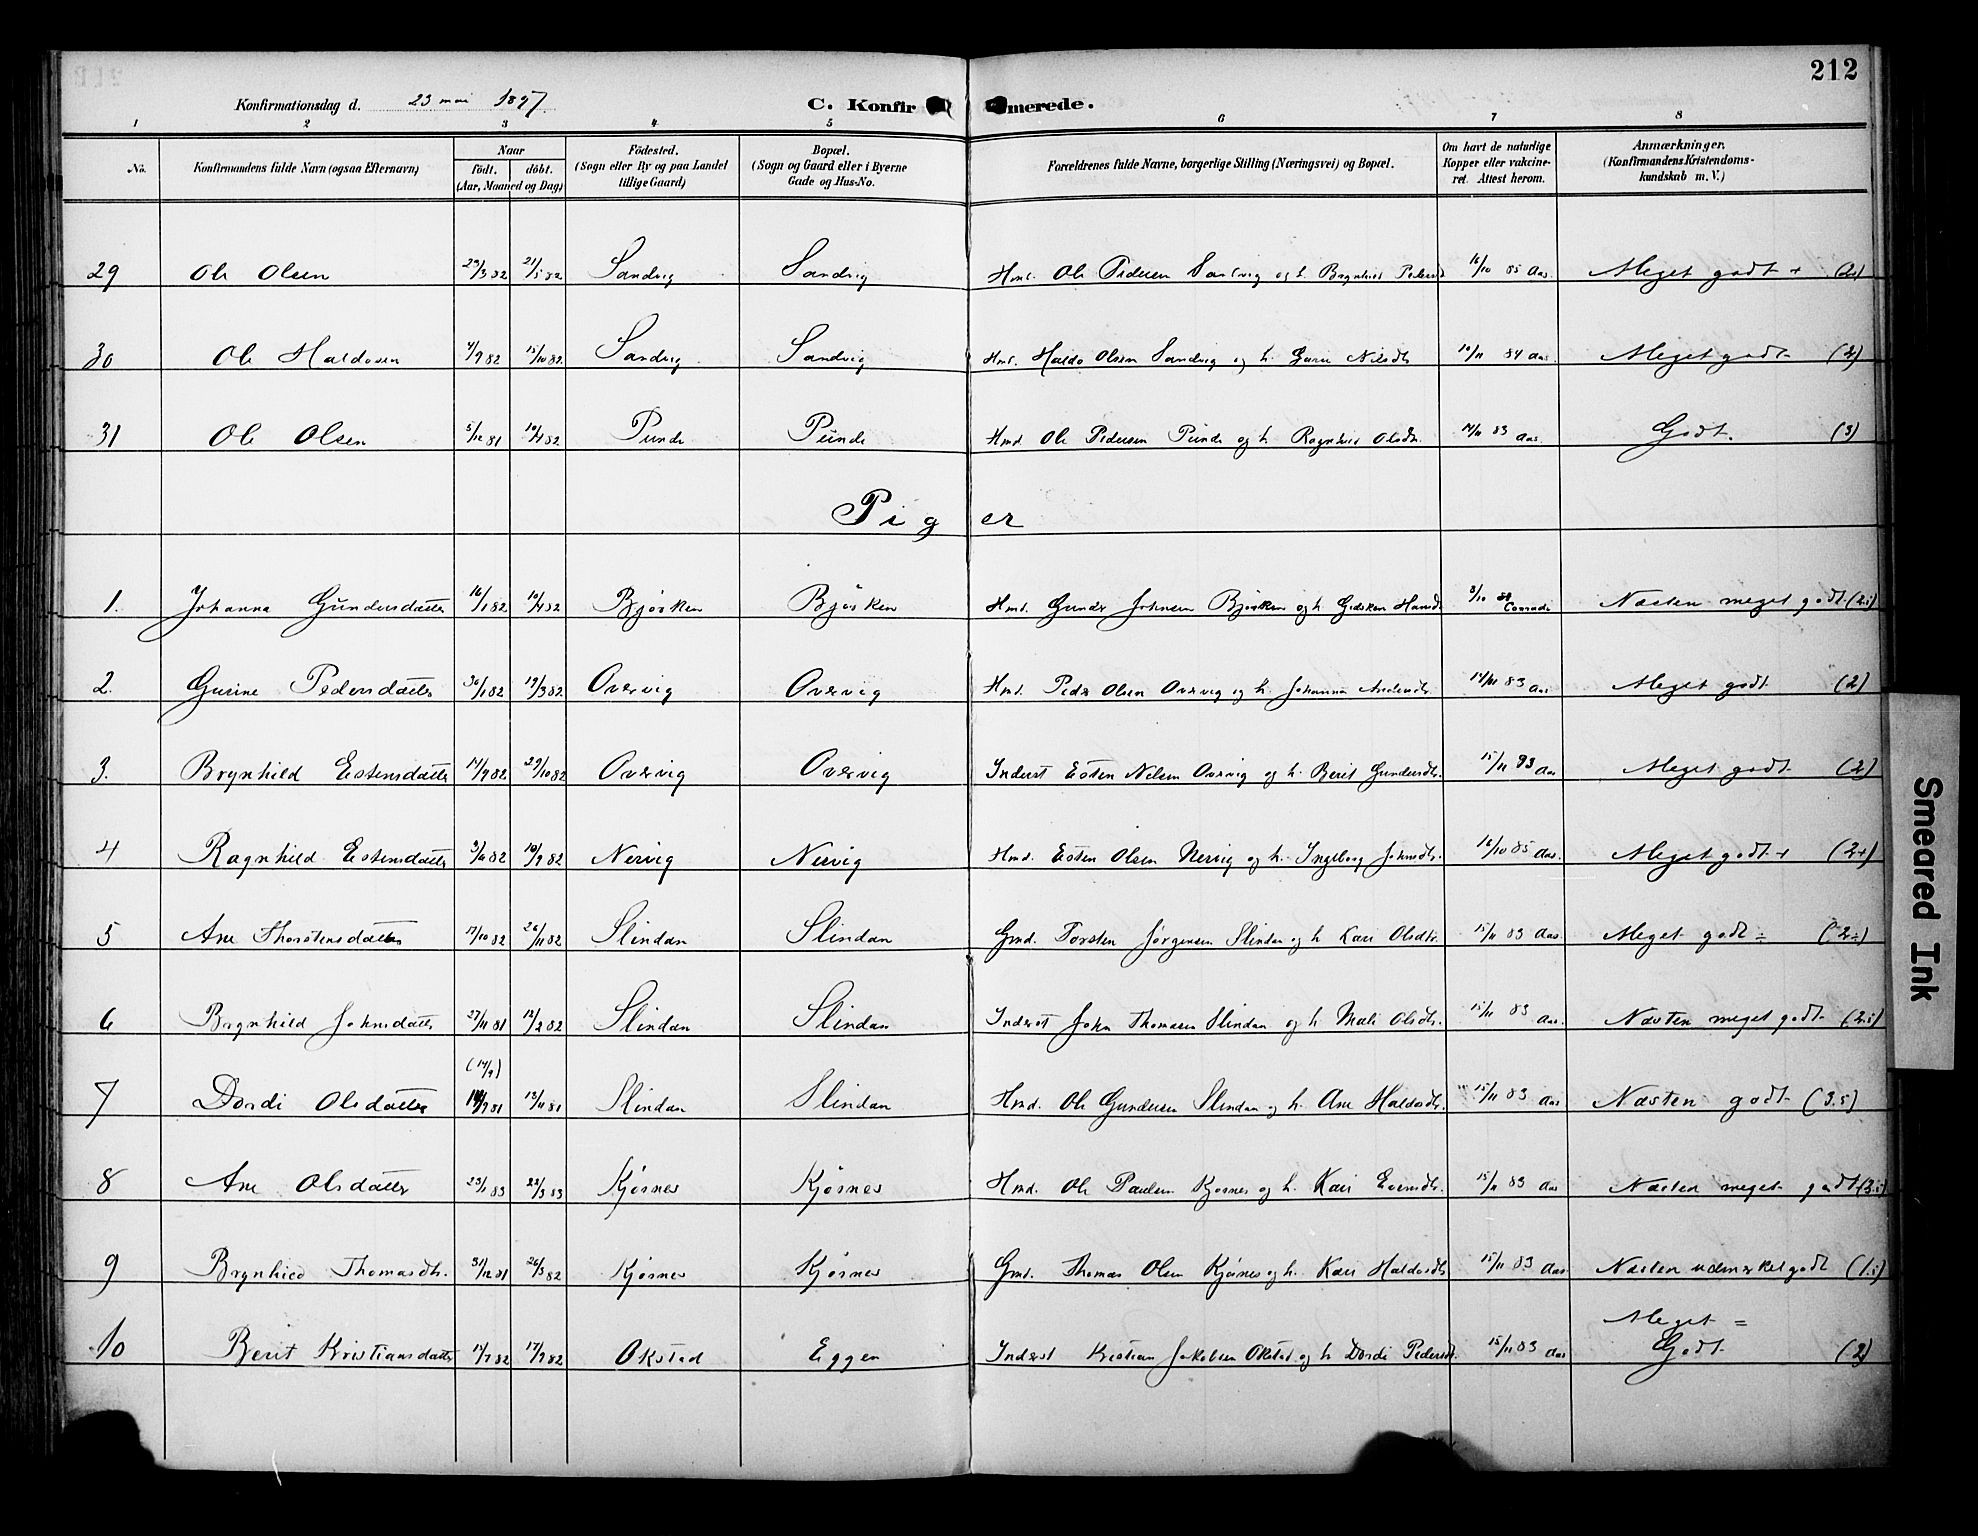 212
Konfirmationsdag d. 23 mai 1897.
C. Konfirmerede.
1 2 3 4 5 6 7 8
No. Konfirmandens fulde Navn (ogsaa Efternavn) Naar født. døbt. (Aar, Maaned og Dag) Fødested. (Sogn eller By og paa Landet tillige Gaard) Bopæl. (Sogn og Gaard eller i Byerne Gade og Hus-No. Forældrenes fulde Navne, borgerlige Stilling (Næringsvei) og Bopæl. Om havt de naturlige Kopper eller vakcineret. Attest herom. Anmærkninger. (Konfirmandens Kristendomskundskab m. V.)
29 Ole Olsen 29/3 82 21/5 82 Sandvig Sandvig Hmd. Ole Pedersen Sandvig og h. Brynhild Pedersd 16/10 85 Aas. Meget godt + (2+)
30 Ole Haldosen 4/9 82 15/10 82 Sandvig Sandvig Hmd. Haldo Olsen Sandvig og h. Guru Nilsdtr 10/11 84 Aas. Meget godt (2)
31 Ole Olsen 5/12 81 10/4 82 Punde Punde Hmd. Ole Pedersen Punde og h. Ragnhild Olsdtr. 14/11 83 Aas. Godt. (3)
Piger
1. Johanna Gundersdatter 16/1 82 10/4 82 Bjørken Bjørken Hmd. Gunder Johnsen Bjørken og h. Gidsken Hansd 3/10 Conradi Næsten meget godt (2.5)
2. Gurine Pedersdatter 30/1 82 19/3 82 Overvig Overvig Hmd. Peder Olsen Overvig og h. Johanna Andersdtr 14/11 83 Aas. Meget godt (2)
3. Brynhild Estensdatter 14/9 82 29/10 82 Overvig Overvig Inderst Esten Nilsen Overvig og h. Berit Gundersdtr. 15/11 83 Aas. Meget godt (2)
4 Ragnhild Estensdatter 3/8 82 10/9 82 Nervig Nervig Hmd. Esten Olsen Nervig og h. Ingeborg Johnsdtr. 16/10 85 Aas. Meget godt + (2+)
5 Ane Thorstensdatter 17/10 82 26/11 82 Slindan Slindan Gmd. Torsten Jørgensen Slindan og h. Kari Olsdtr. 15/11 83 Aas. Meget godt ÷ (2÷)
6 Brynhild Johnsdatter 27/11 81 12/2 82 Slindan Slindan Inderst John Thomasen Slindan og h. Mali Olsdtr. 15/11 83 Aas. Næsten meget godt (2.5)
(14/9)
7 Dordi Olsdatter 14/9 81 13/11 81 Slindan Slindan Hmd. Ole Gundersen Slindan og h. Ane Haldosdtr. 15/11 83 Aas Næsten godt (3.5)
8 Ane Olsdatter 23/1 83 22/3 83 Kjøsnes Kjøsnes Hmd. Ole Paulsen Kjøsnes og h. Kari Evensdtr. 15/11 83 Aas Næsten meget godt (2.5)
9 Brynhild Thomasdtr. 31/12 81 26/3 82 Kjøsnes Kjøsnes Gmd. Thomas Olsen Kjøsnes og h. Kari Haldosdtr 15/11 83 Aas Næsten udmerket godt (1.5)
10 Berit Kristiansdatter 17/7 82 17/9 82 Okstad Eggen Inderst Kristian Jakobsen Okstad og h. Dordi Pedersdt. 15/11 83 Aas Meget = Godt (2)
Smeared Ink